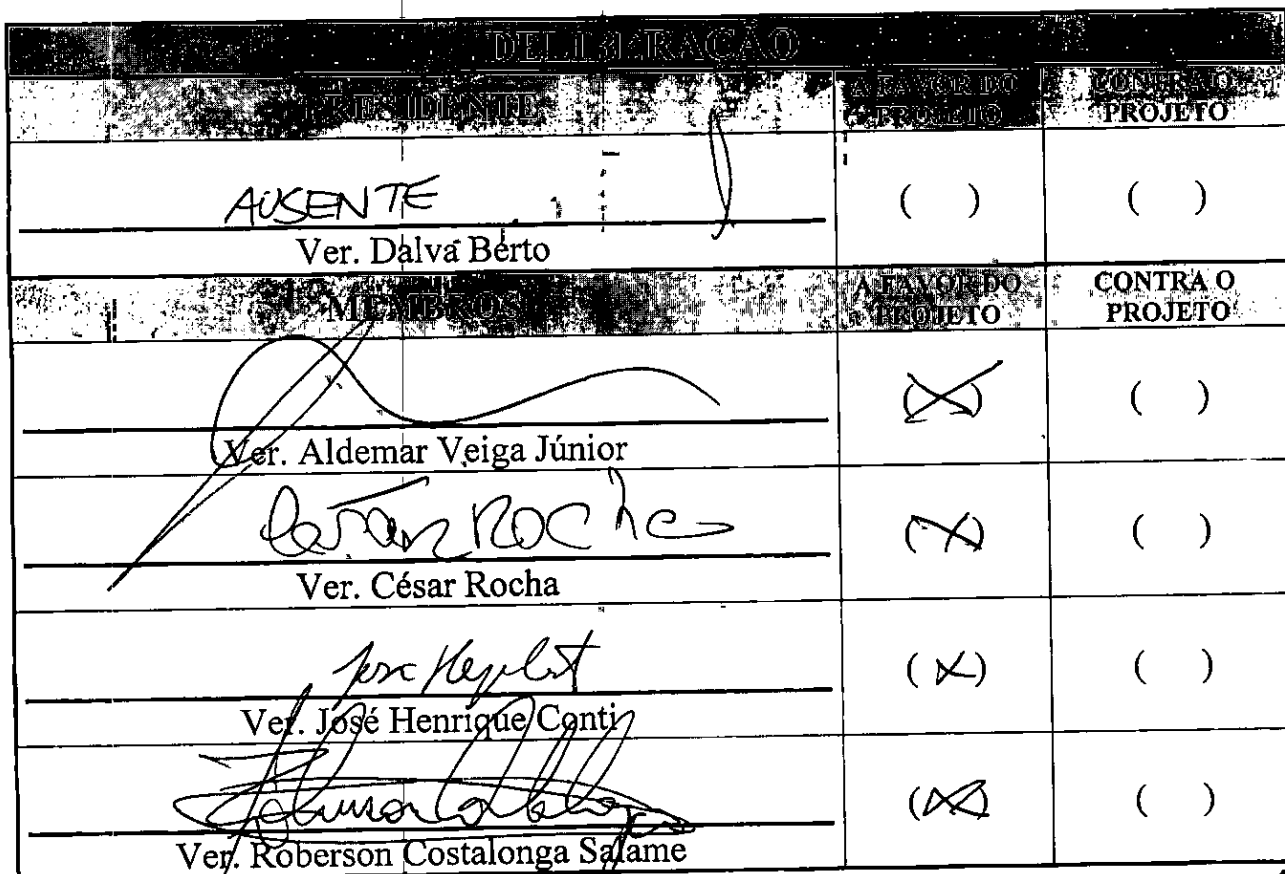 DELIBERAÇÃO
PRESIDENTE A FAVOR DO PROJETO CONTRA O PROJETO
AUSENTE ( ) ( )
Ver. Dalva Berto
MEMBROS A FAVOR DO PROJETO CONTRA O PROJETO
(X) ( )
Ver. Aldemar Veiga Júnior
César Rocha (X) ( )
Ver. César Rocha
(X) ( )
Ver. José Henrique Conti
(X) ( )
Ver. Roberson Costalonga Salame